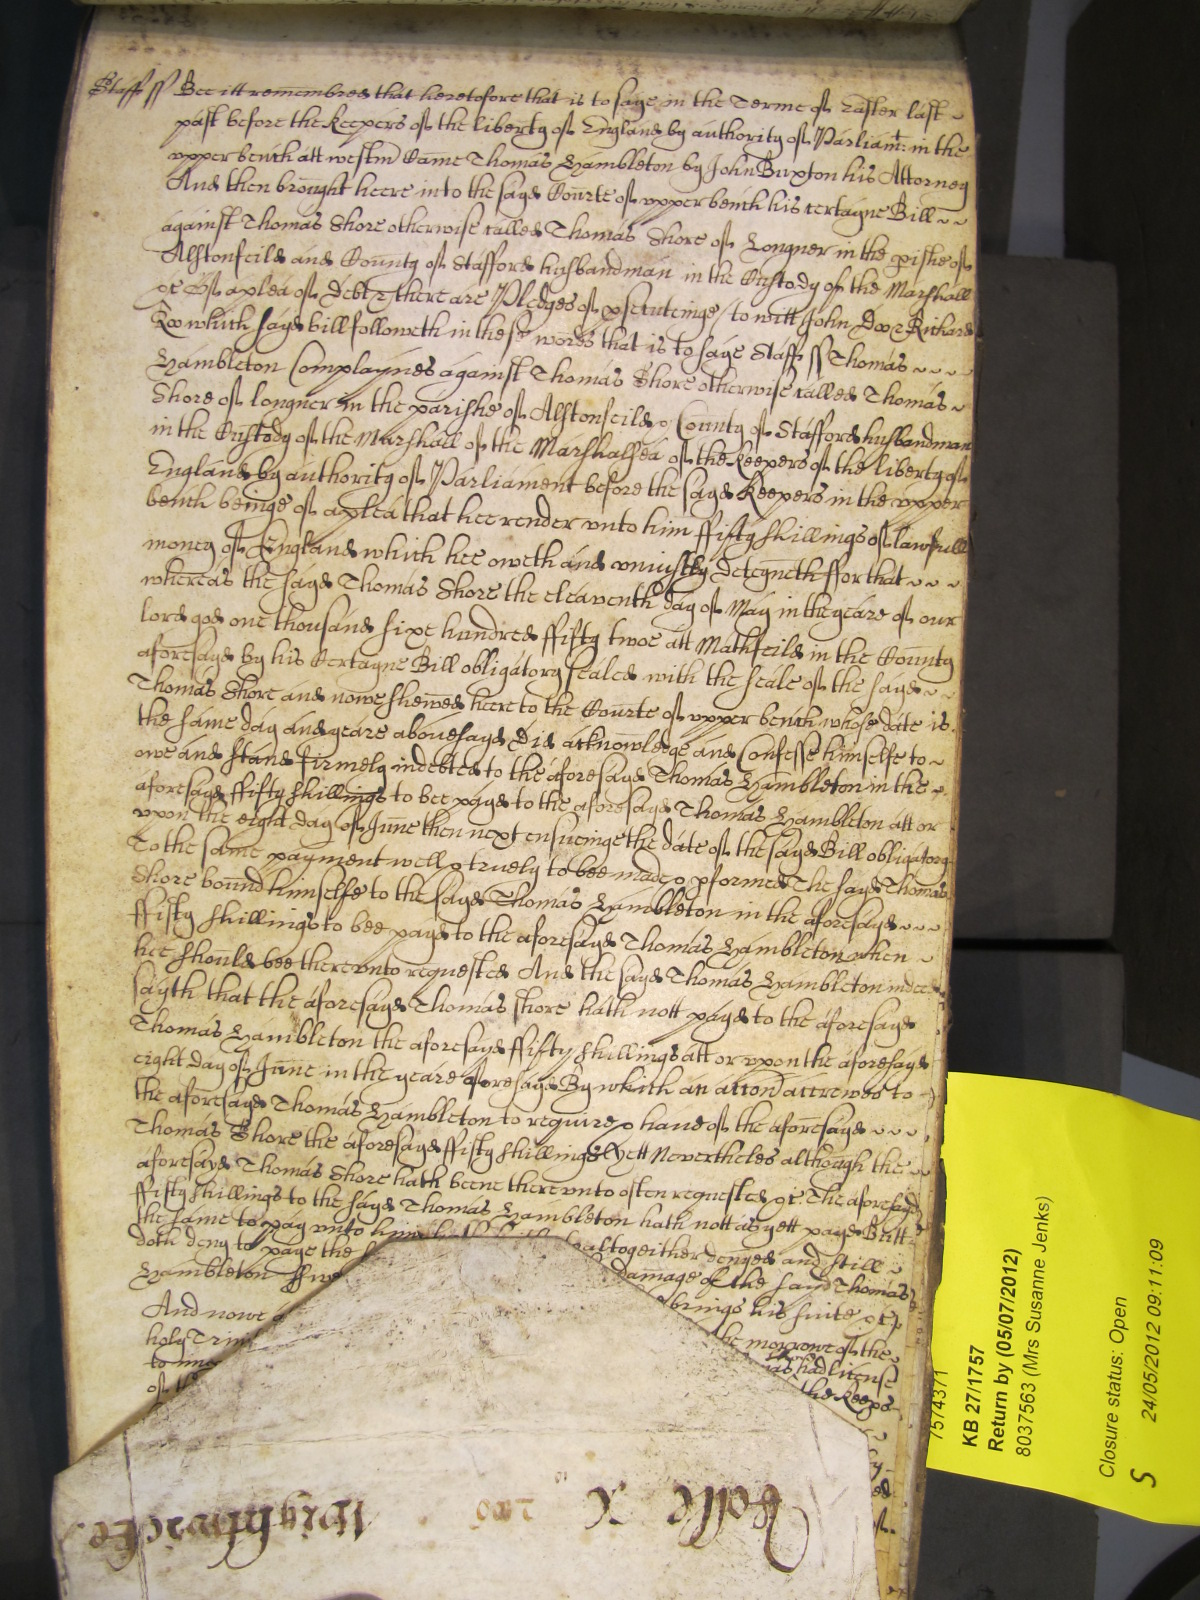 Staff ss Bee itt remembred that heretofore that is to saye in the Terme of Easter last
past before the Keepers of the liberty of England by authority of Parliamt: in the
upper bench att westm Came Thomas Hambleton by John Buxton his Attorney
And then brought heere into the sayd Courte of upper bench his certayne Bill
against Thomas Shore otherwise called Thomas Shore of Longner in the pishe of
Alstonfeild and County of Stafford husbandman in the Custody of the Marshall
&c Of a plea of Debt & there are Pledges of psecuteinge / to witt John Doo & Richard
Roo which sayd bill followeth in these words that is to saye Staff ss Thomas
Hambleton Complaynes against Thomas Shore otherwise called Thomas
Shore of longner in the parishe of Alstonfeild & County of Stafford husbandman
in the Custody of the Marshall of the Marshalsea of the Keepers of the liberty of
England by authority of Parliament before the sayd Keepers in the upper
bench beinge of a plea that hee render unto him ffifty shillings of lawfull
money of England which hee oweth and uniustly deteyneth ffor that
whereas the sayd Thomas Shore the eleaventh day of May in the yeare of our
lord god one thousand sixe hundred ffifty twoe att Mathfeild in the County
aforesayd by his Certayne Bill obligatory sealed with the seale of the sayd
Thomas Shore and nowe shewed heere to the Courte of upper bench whose date is
the same day and yeare abouesayd Did acknowledge and Confesse himselfe to
owe and stand firmely indebted to the aforesayd Thomas Hambleton in the
aforesayd ffifty shillings to bee payd to the aforesayd Thomas Hambleton att or
upon the eight day of June then next ensueinge the date of the sayd Bill obligatory
To the same payment well & truely to bee made & pformed The sayd Thomas
Shore bound himselfe to the sayd Thomas Hambleton in the aforesayd
ffifty shillings to bee payd to the aforesayd Thomas Hambleton when
hee should bee thereunto requested And the sayd Thomas Hambleton indeed
sayth that the aforesayd Thomas shore hath nott payd to the aforesayd
Thomas Hambleton the aforesayd ffifty shillings att or upon the aforesayd
eight day of June in the yeare aforesayd By which an accon accrewed to
the aforesayd Thomas Hambleton to require & haue of the aforesayd
Thomas Shore the aforesayd ffifty shillings Yett Nevertheles although the
aforesayd Thomas Shore hath beene thereunto often requested &c. The aforesayd
ffifty shillings to the sayd Thomas Hambleton hath nott as yett payd Butt
the same to pay unto him altogeither denyed and still
doth deny to paye the damage of the sayd Thomas
Hambleton ffive brings his suite &c
And nowe the morrowe of the
holy Trin had licence
to the Keepe
of the
Rolle X
Wightwicke
7574371
KB 27/1757
Return by (05/07/2012)
8037563 (Mrs Susanne Jenks)
Closure status: Open
S 24/05/2012 09:11:09